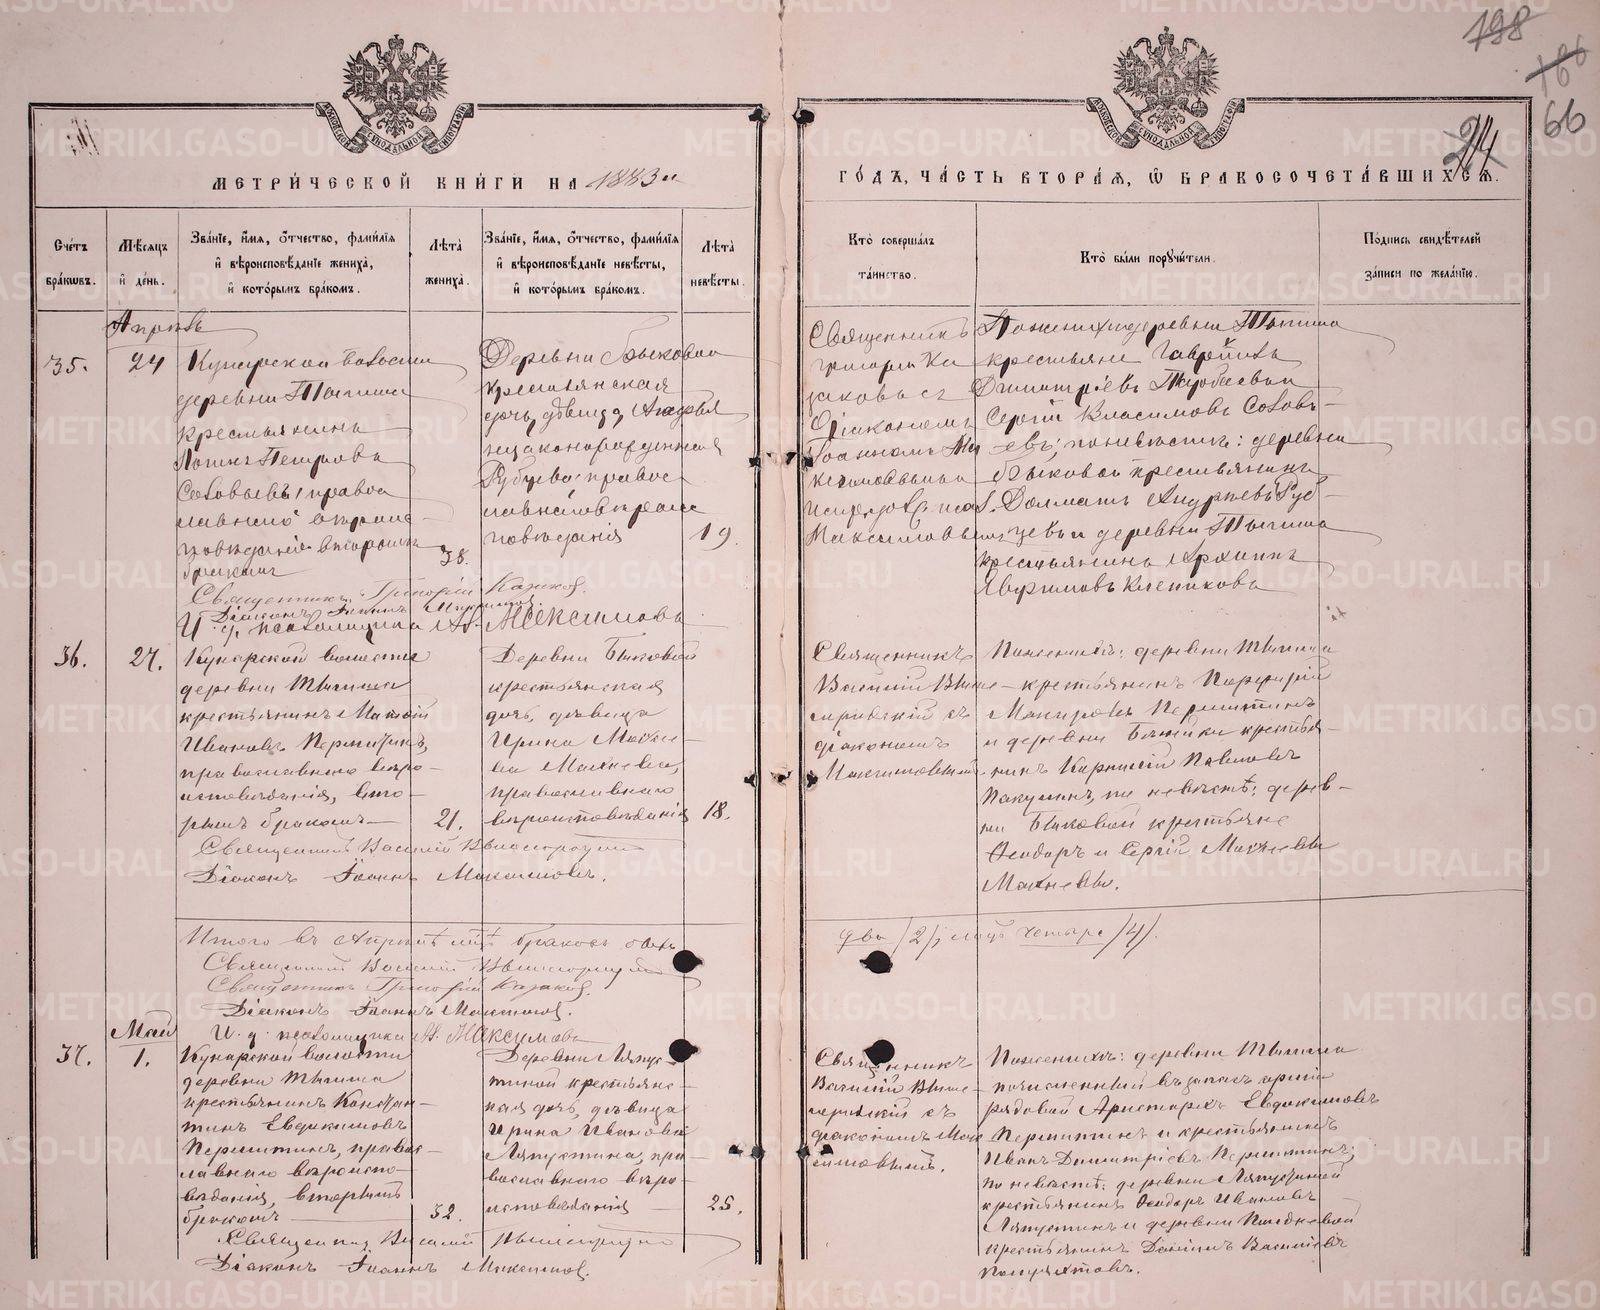 198
166
66
214
МЕТРИ́ЧЕСКОЙ КНИ́ГИ НА 1883 й
ГО́ДЪ, ЧА́СТЬ ВТОРА́Я, Ѡ БРАКОСОЧЕТА́ВШИХСЯ.
Сче́тъ бра́кѡвъ.
Мѣ́сяцъ и҆ де́нь.
Зва́нїе, и҆́мя, ѻ҆́тчество, фами́лїя и҆ вѣроисповѣ́данїе жениха̀, и҆ кото́рымъ бра́комъ.
Лѣ́та жениха̀.
Зва́нїе, и҆́мя, ѻ҆́тчество, фами́лїя и҆ вѣроисповѣ́данїе невѣ́сты, и҆ кото́рымъ бра́комъ.
Лѣ́та невѣ́сты.
Кто̀ соверша́лъ та́инство.
Кто̀ бы́ли поручи́тели.
По́дпись свидѣ́телей за́писи по жела́нїю.
Апрѣль
35.
24
Кунарской волости
деревни Тыгиша
крестьянинъ
Петровъ
Соловьевъ, право
славнаго вѣроис
повѣданія вторымъ
бракомъ
38.
Деревни Быковой
крестьянская
дочь, дѣвица,
незаконорожденная
Рубцова, правос
лавнаго вѣроис
повѣданія
19.
Священникъ
Григорій Ка
заковъ съ
Діакономъ
Іоанномъ
Максимовымъ
По женихѣ деревни Тыгиша
крестьяне Гавріилъ
Димитріевъ
Сергій Власимовъ Соловь
евъ; по невѣстѣ: деревни
Быковой крестьянинъ
Долматъ Андреевъ Руб
цевъ и деревни Тыгиша
крестьянинъ Архипъ
Клепиковъ
Священникъ Григорій Казаковъ.
Діаконъ Іоаннъ Максимовъ.
И. д. псаломщика Ал. Максимовъ
36.
27.
Кунарской волости
деревни Тыгиша
крестьянинъ Матѳій
Ивановъ Першинъ,
православнаго вѣро-
исповѣданія, вто-
рымъ бракомъ
21.
Деревни Быковой
крестьянская
дочь, дѣвица
Ирина
Махнева,
православнаго
вѣроисповѣданія
18.
Священникъ
Василій
съ
діакономъ
Максимовымъ
По женихѣ: деревни Тыгиша
крестьянинъ Порфирій
и деревни крестья-
нинъ Павловъ
по невѣстѣ: дерев-
ни Быковой крестьяне
Ѳеодоръ и Сергій
Махневы.
Священникъ Василій
Діаконъ Іоаннъ Максимовъ.
Итого въ Апрѣлѣ м-цѣ браковъ было
два /2/; лицъ четыре /4/.
Священникъ Василій
Священникъ Григорій Казаковъ.
Діаконъ Іоаннъ Максимовъ.
И. д. псаломщика Ал. Максимовъ
Май
37.
1.
Кунарской волости
деревни Тыгиша
крестьянинъ Констан-
тинъ Евдокимовъ
правос-
лавнаго вѣроиспо-
вѣданія, вторымъ
бракомъ
32.
Деревни Ляпус-
тиной крестьянс-
кая дочь, дѣвица
Ирина Иванова
Ляпустина, пра-
вославнаго вѣро-
исповѣданія
25.
Священникъ
Василій
съ
діакономъ Мак
симовымъ.
По женихѣ: деревни Тыгиша
въ запасъ арміи
рядовой Аристархъ Евдокимовъ
и крестьянинъ
Иванъ Димитріевъ
по невѣстѣ: деревни Ляпустиной
крестьянинъ Ѳеодоръ Ивановъ
Ляпустинъ и деревни
крестьянинъ Васильевъ
Священникъ Василій
Діаконъ Іоаннъ Максимовъ.
METRIKI.GASO-URAL.RU